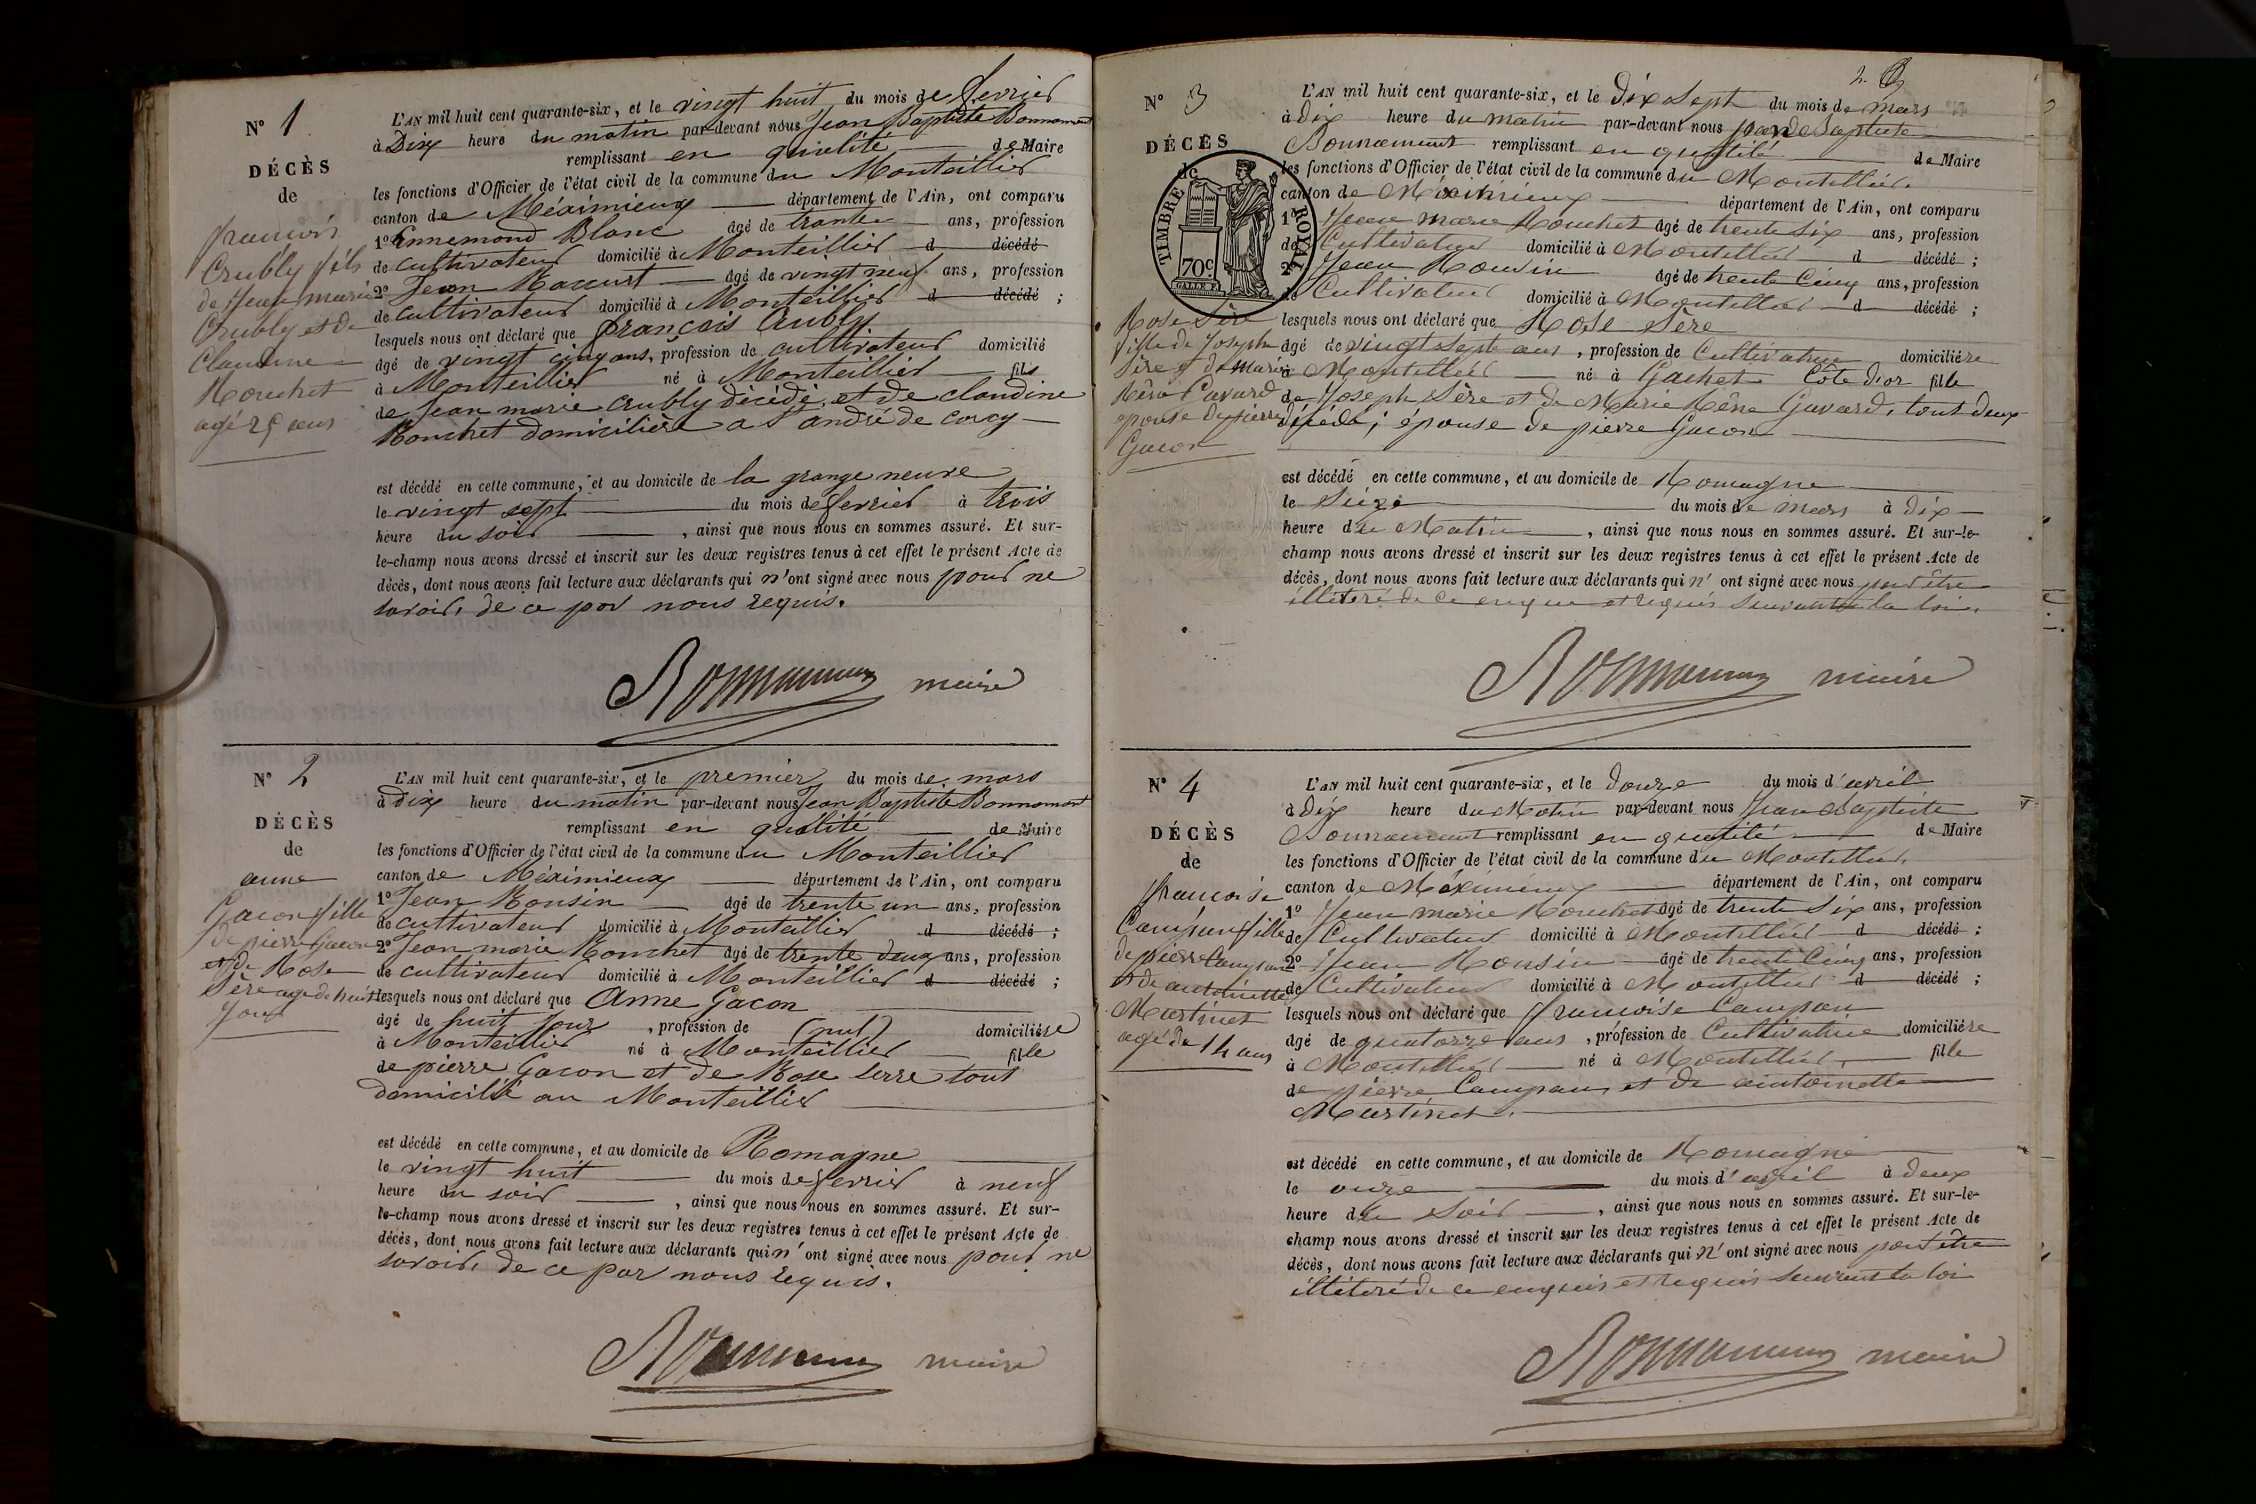 N° 1
DÉCÈS
de
françois
Crubly fils
de Jean marie
Crubly et de
Claudine
Rouchet
agé 25 ans
L'AN mil huit cent quarante-six, et le vingt huit du mois de fevrier
à Dix heure du matin par-devant nous Jean Baptiste Bonnamont
remplissant en quálité de Maire
les fonctions d'Officier de l'état civil de la commune du Monteillier
canton de Méximieux département de l'Ain, ont comparu
1° Ennemond Blanc âgé de trante ans, profession
de cultivateur domicilié à Monteillier d décédé
2° Jean Racurt âgé de vingt neuf ans, profession
de cultivateur domicilié à Monteillier d décédé ;
lesquels nous ont déclaré que françois Crubly
âgé de vingt cinq ans, profession de cultivateur domicilié
à Monteillier né à Monteillier fils
de Jean marie Crubly décédé, et de claudine
Ronchet domicilière a St andré de corcy
est décédé en cette commune, et au domicile de la grange neuve
le vingt sept du mois de fevrier à trois
heure du soir , ainsi que nous nous en sommes assuré. Et sur-
le-champ nous avons dressé et inscrit sur les deux registres tenus à cet effet le présent Acte de
décès, dont nous avons fait lecture aux déclarants qui n'ont signé avec nous pour ne
savoir, de ce par nous requis.
Bonnamour maire
N° 2
DÉCÈS
de
anne
Gacon fille
de pierre Gacon
et de Rose
Sère age de huit
Jour
L'AN mil huit cent quarante-six, et le premier du mois de mars
à Dix heure du matin par-devant nous Jean Baptiste Bonnamont
remplissant en quálité de Maire
les fonctions d'Officier de l'état civil de la commune du Monteillier
canton de Méximieux département de l'Ain, ont comparu
1° Jean Rousin âgé de trente un ans, profession
de cultivateur domicilié à Monteillier d décédé ;
2° Jean marie Ronchet âgé de trente deux ans, profession
de cultivateur domicilié à Monteillier d décédé ;
lesquels nous ont déclaré que Anne Gacon
âgé de huit Jour , profession de (nul) domicilière
à Monteillier né à Monteillier fille
de pierre Gacon et de Rose Serre tout
domicilié au Monteillier
est décédé en cette commune, et au domicile de Romagne
le vingt huit du mois de fevrier à neuf
heure du soir , ainsi que nous nous en sommes assuré. Et sur-
le-champ nous avons dressé et inscrit sur les deux registres tenus à cet effet le présent Acte de
décès, dont nous avons fait lecture aux déclarants qui n'ont signé avec nous pour ne
savoir, de ce par nous requis.
Bonnamour maire
2.
N° 3
DÉCÈS
de
TIMBRE ROYAL
70c
Rose Sère
fille de Joseph
Sère et de Marie
Rêné Gavard
épouse de pierre
Gacon
L'AN mil huit cent quarante-six, et le Dix Sept du mois de mars
à dix heure du matin par-devant nous Jean Baptiste
Bonnamont remplissant en qualité de Maire
les fonctions d'Officier de l'état civil de la commune du Montellier
canton de Meximieux département de l'Ain, ont comparu
1° Jean marie Rouchet âgé de trente six ans, profession
de Cultivateur domicilié à Montellier d décédé ;
2° Jean Rousin âgé de trente Cinq ans, profession
de Cultivateur domicilié à Montellier d décédé ;
lesquels nous ont déclaré que Rose Sère
âgé de vingt Sept ans , profession de Cultivatrice domicilière
à Montellier né à Gachet Côte d'or fille
de Joseph Sère et de Marie Rêné Gavard, tout deux
décédé ; épouse de pierre Gacon
est décédé en cette commune, et au domicile de Romagne
le Seize du mois de mars à dix
heure du Matin , ainsi que nous nous en sommes assuré. Et sur-le-
champ nous avons dressé et inscrit sur les deux registres tenus à cet effet le présent Acte de
décès, dont nous avons fait lecture aux déclarants qui n' ont signé avec nous pour être
illitéré de ce enquis et requis Suivant la loi.
Bonnamour maire
N° 4
DÉCÈS
de
françoise
Campan fille
de pierre Campan
et de antoinette
Martinet
agé de 14 ans
L'AN mil huit cent quarante-six, et le douze du mois d'avril
à Dix heure du Matin par-devant nous Jean Baptiste
Bonnamont remplissant en qualité de Maire
les fonctions d'Officier de l'état civil de la commune du Montellier
canton de Méximieux département de l'Ain, ont comparu
1° Jean marie Rouchet âgé de trente Six ans, profession
de Cultivateur domicilié à Montellier d décédé ;
2° Jean Rousin âgé de trente Cinq ans, profession
de Cultivateur domicilié à Montellier d décédé ;
lesquels nous ont déclaré que françoise Campan
âgé de quatorze ans , profession de Cultivatrice domicilière
à Montellier né à Montellier fille
de pierre Campan et de antoinette
Martinet.
est décédé en cette commune, et au domicile de Romagne
le onze du mois d'avril à deux
heure du Soir , ainsi que nous nous en sommes assuré. Et sur-le-
champ nous avons dressé et inscrit sur les deux registres tenus à cet effet le présent Acte de
décès, dont nous avons fait lecture aux déclarants qui n' ont signé avec nous pour être
illitéré de ce enquis et requis Suivant la loi
Bonnamour maire